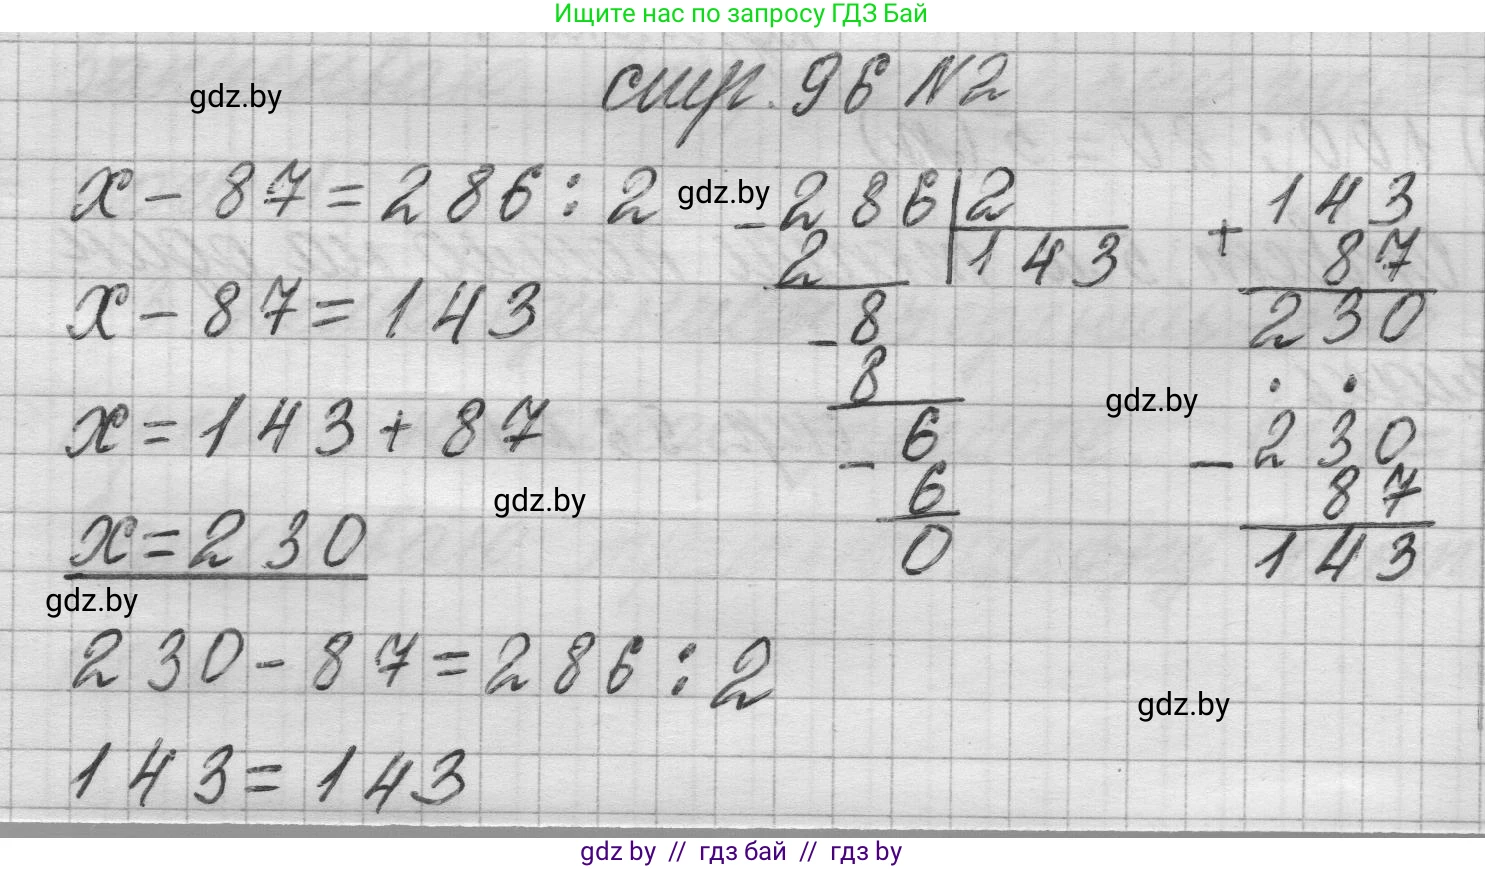 Ищите нас по запросу ГДЗ Бай
стр. 96 №2
gdz.by
x - 87 = 286 : 2
x - 87 = 143
x = 143 + 87
x = 230
230 - 87 = 286 : 2
143 = 143
gdz.by
- 286 | 2
2 143
- 8
8
- 6
6
0
143
+ 87
230
gdz.by
- 230
87
143
gdz.by
gdz.by
gdz.by
gdz by // гдз бай // гдз by